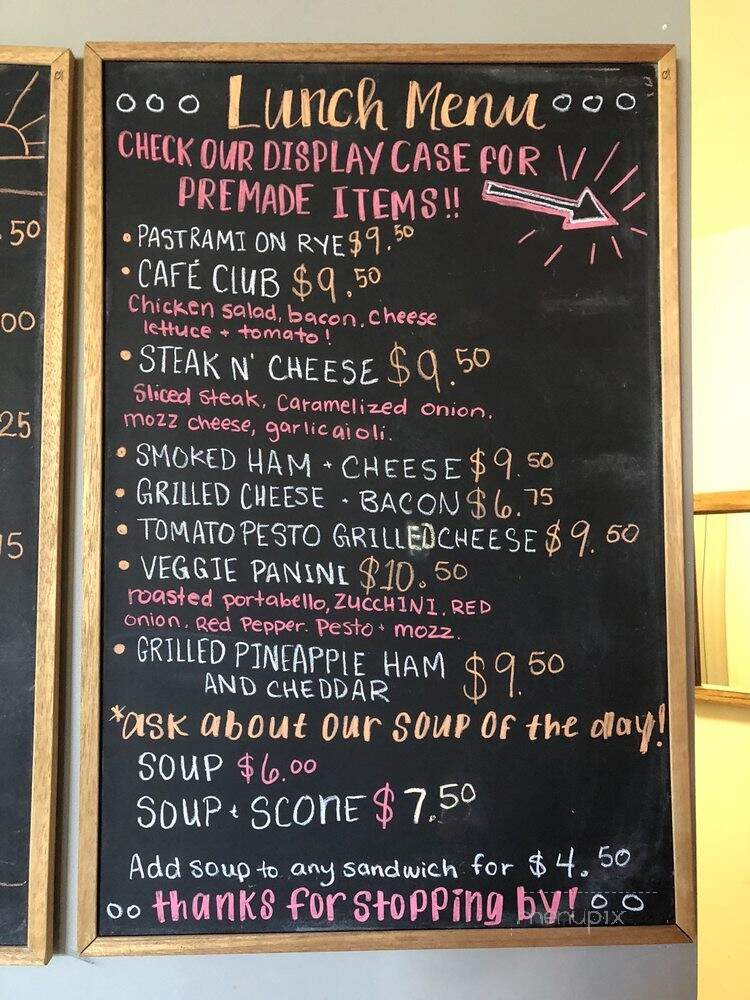 Lunch Menu
CHECK OUR DISPLAY CASE FOR
PREMADE ITEMS!!
• PASTRAMI ON RYE $9.50
• CAFÉ CLUB $9.50
Chicken salad, bacon, cheese
lettuce + tomato!
• STEAK N' CHEESE $9.50
Sliced steak, Caramelized onion,
mozz cheese, garlic aioli.
• SMOKED HAM + CHEESE $9.50
• GRILLED CHEESE · BACON $6.75
• TOMATO PESTO GRILLED CHEESE $9.50
• VEGGIE PANINI $10.50
roasted portabello, ZUCCHINI, RED
onion, Red Pepper, Pesto + mozz.
• GRILLED PINEAPPLE HAM
AND CHEDDAR $9.50
*ask about our SOUP OF the day!
SOUP $6.00
SOUP + SCONE $7.50
Add soup to any sandwich for $4.50
thanks for stopping by!
menupix
.50
00
25
75